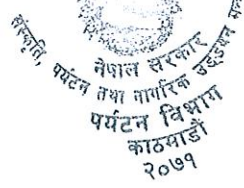 नेपाल सरकार
संस्कृति, पर्यटन तथा नागरिक उड्डयन
पर्यटन विभाग
काठमाडौं
२०७१